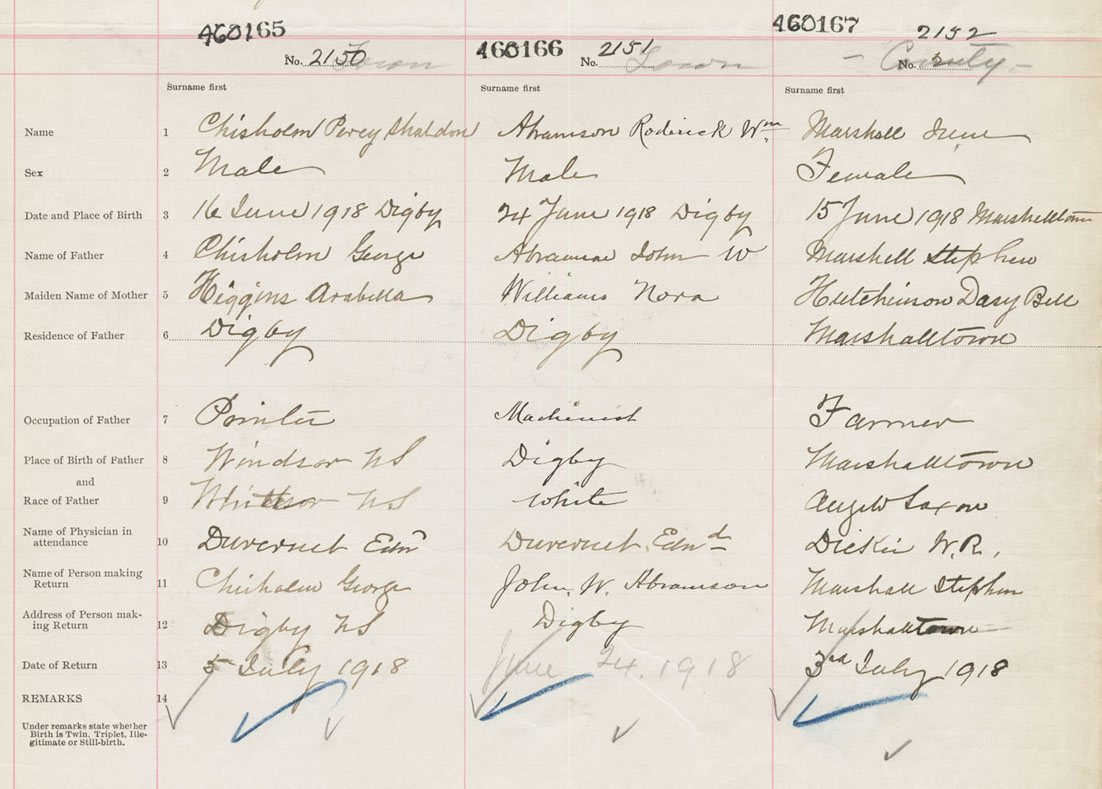 460165
460166
460167
No. 2150 Town
No. 2151 Town
No. 2152 - County -
Surname first
Surname first
Surname first
Name 1 Chisholm Percy Shaldon Abramson Roderick Wm Marshall Irene
Sex 2 Male Male Female
Date and Place of Birth 3 16 June 1918 Digby 24 June 1918 Digby 15 June 1918 Marshalltown
Name of Father 4 Chisholm George Abramson John W Marshall Stephen
Maiden Name of Mother 5 Higgins Arabella Williams Nora Hutchinson Dasy Bell
Residence of Father 6 Digby Digby Marshalltown
Occupation of Father 7 Machinist Farmer
Place of Birth of Father 8 Windsor NS Digby Marshalltown
and
Race of Father 9 NS White Anglo Saxon
Name of Physician in
attendance 10 Duvernet Edm Duvernet Edmd Dickie W.R.
Name of Person making
Return 11 Chisholm George John W. Abramson Marshall Stephen
Address of Person mak-
ing Return 12 Digby NS Digby Marshalltown
Date of Return 13 5 July 1918 June 24. 1918 3rd July 1918
REMARKS 14
Under remarks state whether
Birth is Twin, Triplet, Ille-
gitimate or Still-birth.